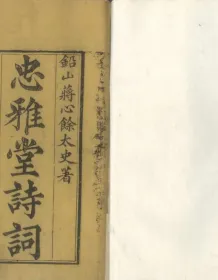 鉛山蔣心餘太史著
忠雅堂詩詞